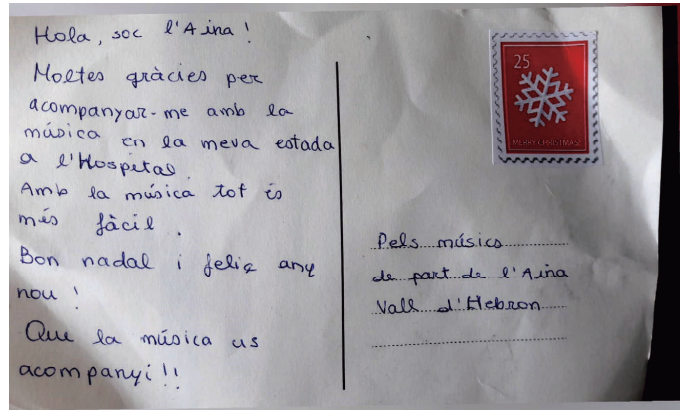 Hola, soc l'Aina!
Moltes gràcies per
acompanyar-me amb la
música en la meva estada
a l'Hospital.
Amb la música tot és
més fàcil.
Bon nadal i feliç any
nou!
Que la música us
acompanyi!!
25
MERRY CHRISTMAS
Pels músics
de part de l'Aina
Vall d'Hebron